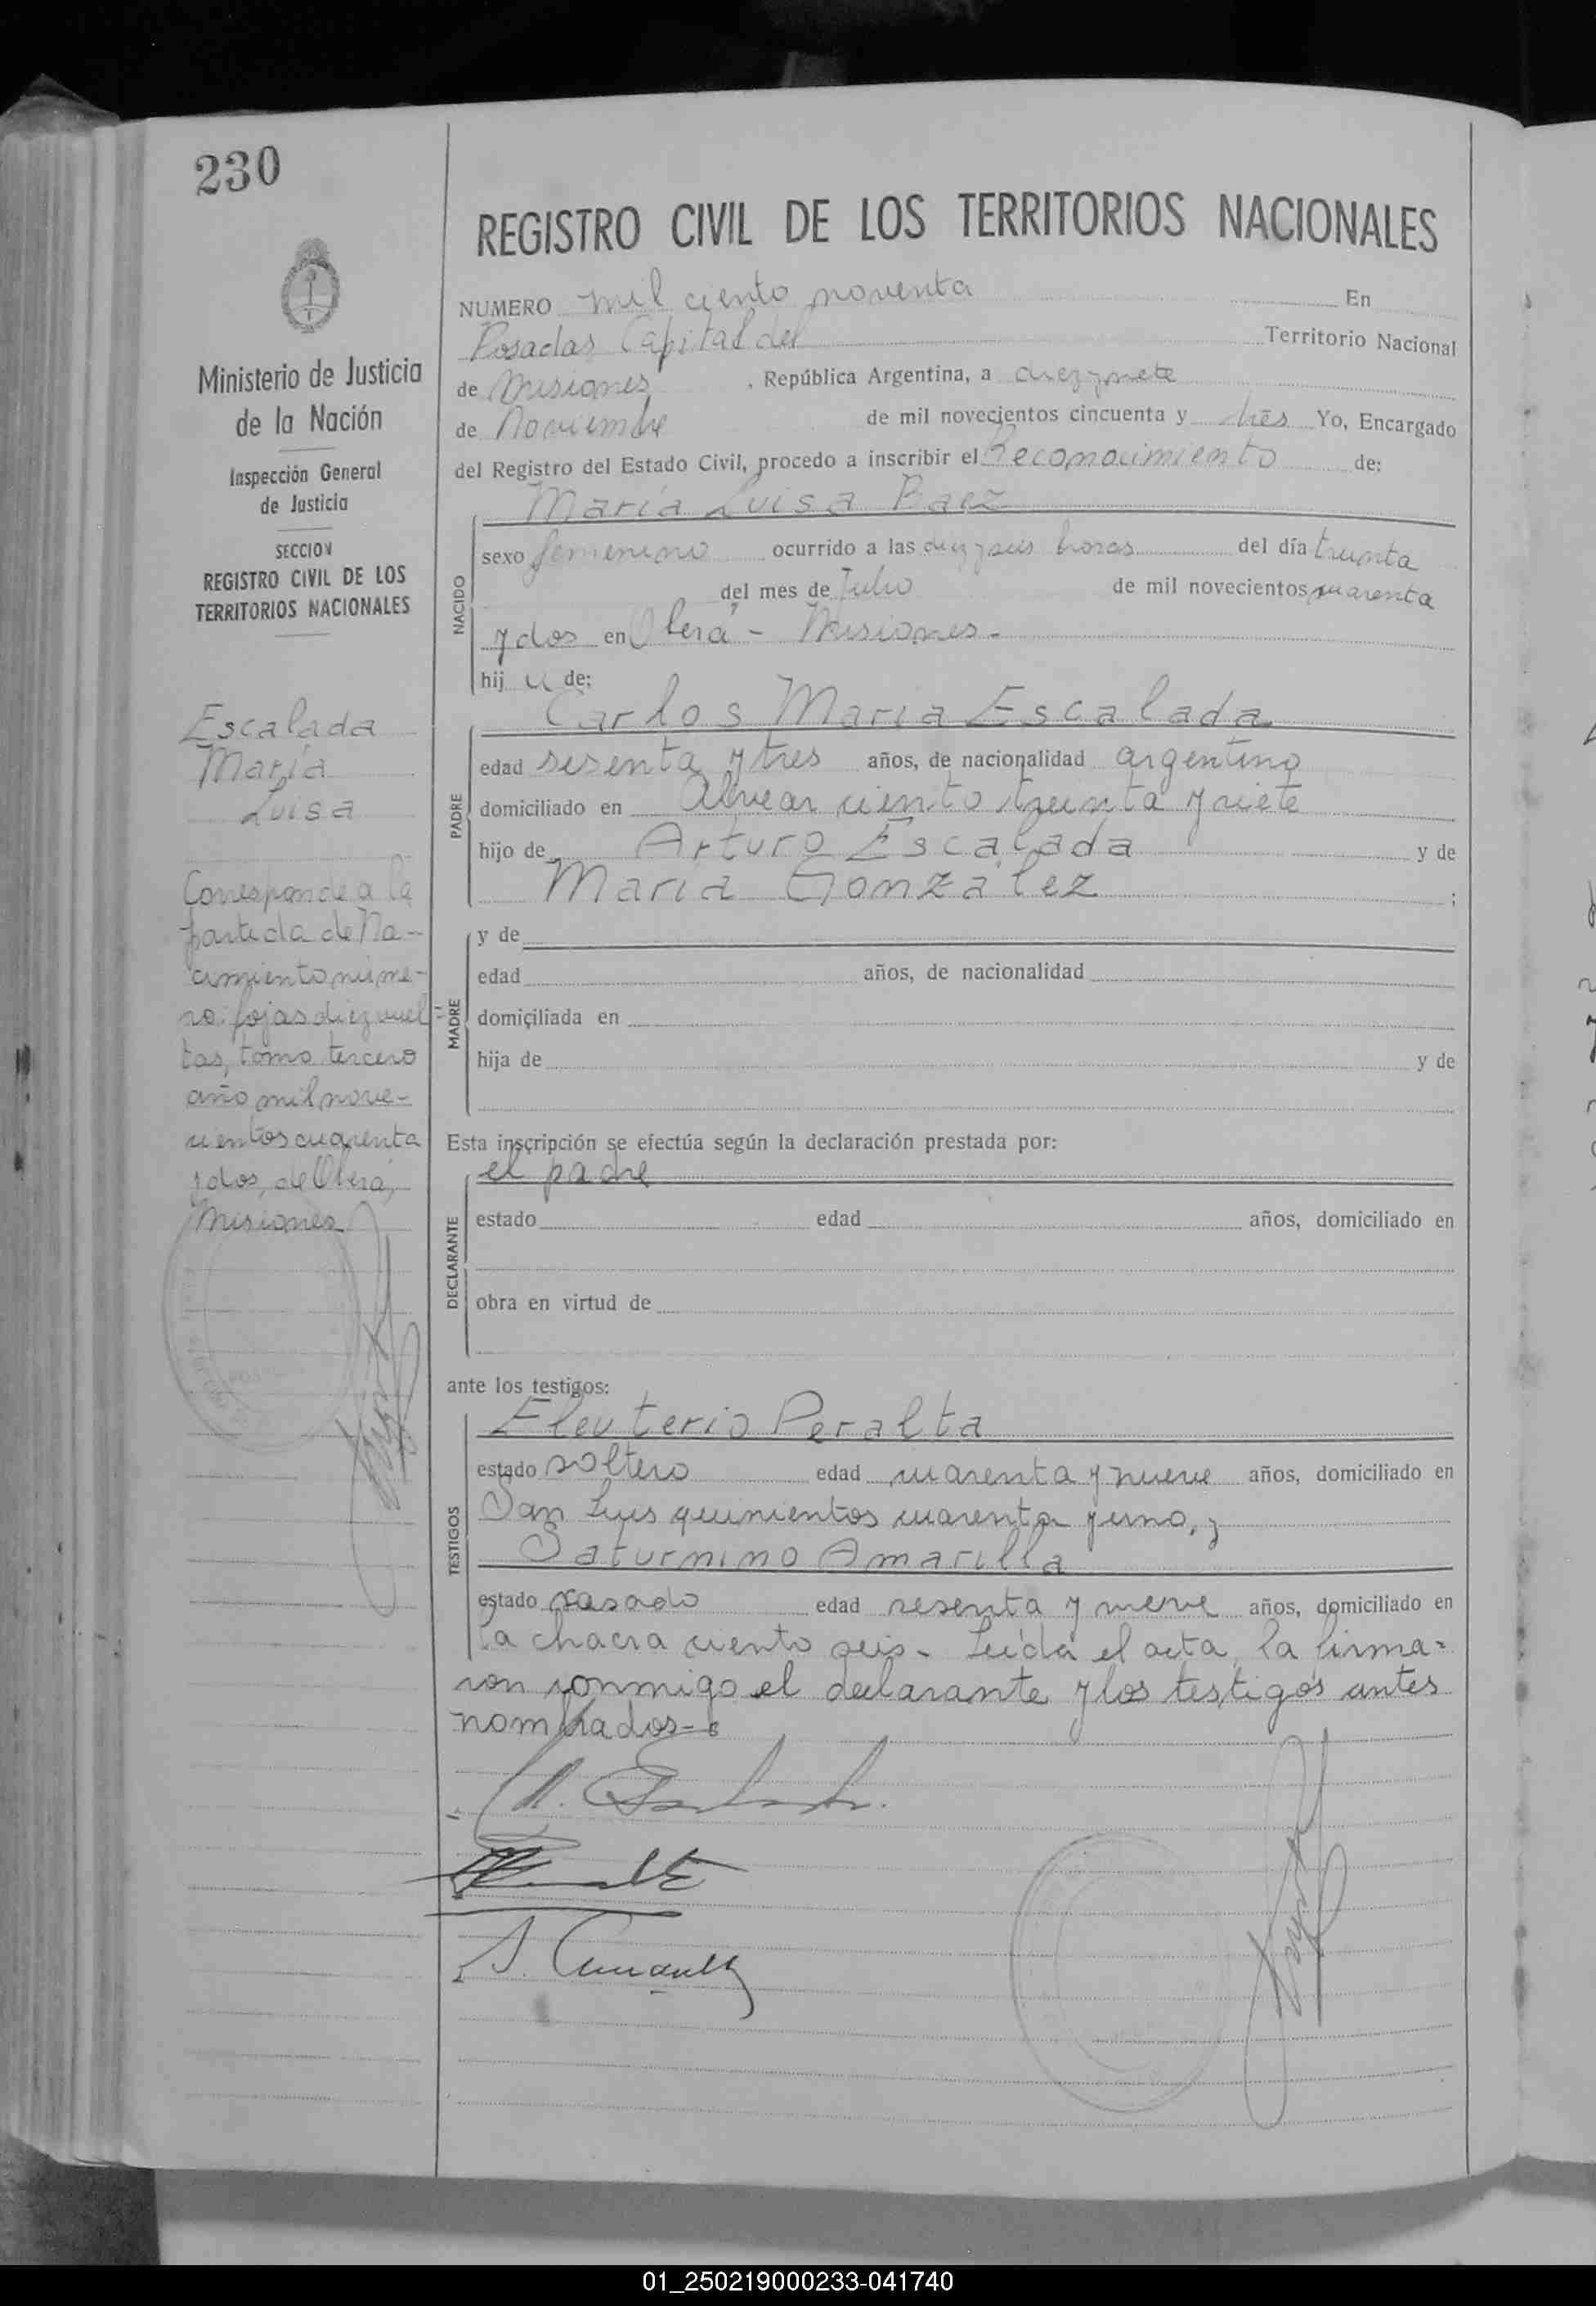 230
Ministerio de Justicia
de la Nación
Inspección General
de Justicia
SECCION
REGISTRO CIVIL DE LOS
TERRITORIOS NACIONALES
Escalada
María
Luisa
Corresponde a la
partida de Na-
cimiento núme-
ro: fojas diez vuel
tas, tomo tercero
año mil nove-
cientos cuarenta
y dos, de Oberá,
Misiones
REGISTRO CIVIL DE LOS TERRITORIOS NACIONALES
NUMERO mil ciento noventa En
Posadas Capital del Territorio Nacional
de Misiones , República Argentina, a diez y siete
de Noviembre de mil novecientos cincuenta y tres Yo, Encargado
del Registro del Estado Civil, procedo a inscribir el Reconocimiento de:
María Luisa Baez
NACIDO
sexo femenino ocurrido a las diez y seis horas del día treinta
del mes de Julio de mil novecientos cuarenta
y dos en Oberá - Misiones.
hij a de:
Carlos María Escalada
PADRE
edad sesenta y tres años, de nacionalidad argentino
domiciliado en Alvear ciento treinta y siete
hijo de Arturo Escalada y de
María González ;
MADRE
y de
edad años, de nacionalidad
domiciliada en
hija de y de
Esta inscripción se efectúa según la declaración prestada por:
el padre
DECLARANTE
estado edad años, domiciliado en
obra en virtud de
ante los testigos:
TESTIGOS
Eleuterio Peralta
estado soltero edad cuarenta y nueve años, domiciliado en
San Luis quinientos cuarenta y uno, y
Saturnino Amarilla
estado casado edad sesenta y nueve años, domiciliado en
la chacra ciento seis - Leída el acta, la firma-
ron conmigo el declarante y los testigos antes
nombrados-
01_250219000233-041740